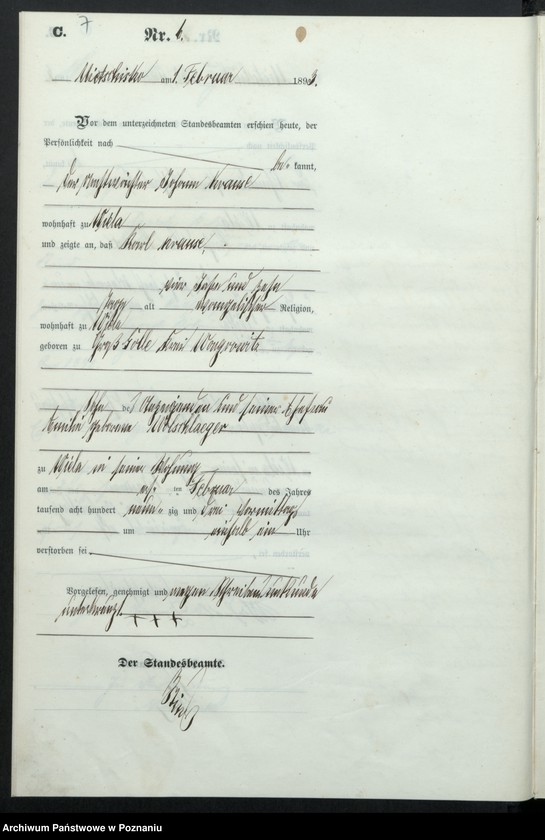 C. 7 Nr. 6.
am 1. Februar 1893.
Vor dem unterzeichneten Standesbeamten erschien heute, der
Persönlichkeit nach
be= kannt,
der Nachtwächter Johann Krause
wohnhaft zu Wiela
und zeigte an, daß Karl Krause,
vier Jahr und zehn
Tage alt evangelischer Religion,
wohnhaft zu Wiela
geboren zu Groß Kreis Wongrowitz
Sohn des Anzeigenden und seiner Ehefrau
Emilie geborene
zu Wiela in seiner Wohnung
am ersten Februar des Jahres
tausend acht hundert neun= zig und drei Vormittags
um ein Uhr
verstorben sei.
Vorgelesen, genehmigt und wegen Schreibens Unkunde
unterkreuzt.
+ + +
Der Standesbeamte.
Archiwum Państwowe w Poznaniu